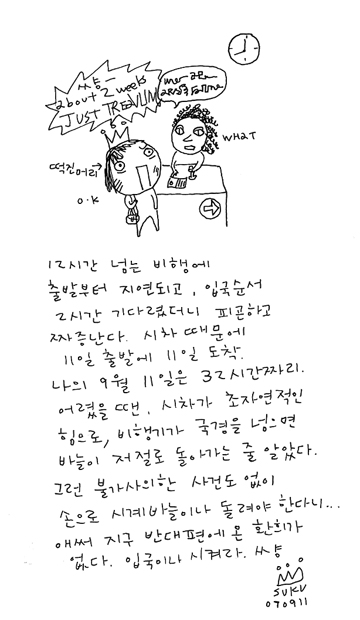 씨양 -
about 2 weeks
JUST TREAVLING
WHAT
떡진머리→
O.K
12시간 넘는 비행에
출발부터 지연되고, 입국순서
2시간 기다렸더니 피곤하고
짜증난다. 시차 때문에
11일 출발에 11일 도착.
나의 9월 11일은 32시간짜리.
어렸을 땐, 시차가 초자연적인
힘으로, 비행기가 국경을 넘으면
바늘이 저절로 돌아가는 줄 알았다.
그런 불가사의한 사건도 없이
손으로 시계바늘이나 돌려야 한다니...
애써 지구 반대편에 온 환희가
없다. 입국이나 시켜라. 씨양
SUKU
070911